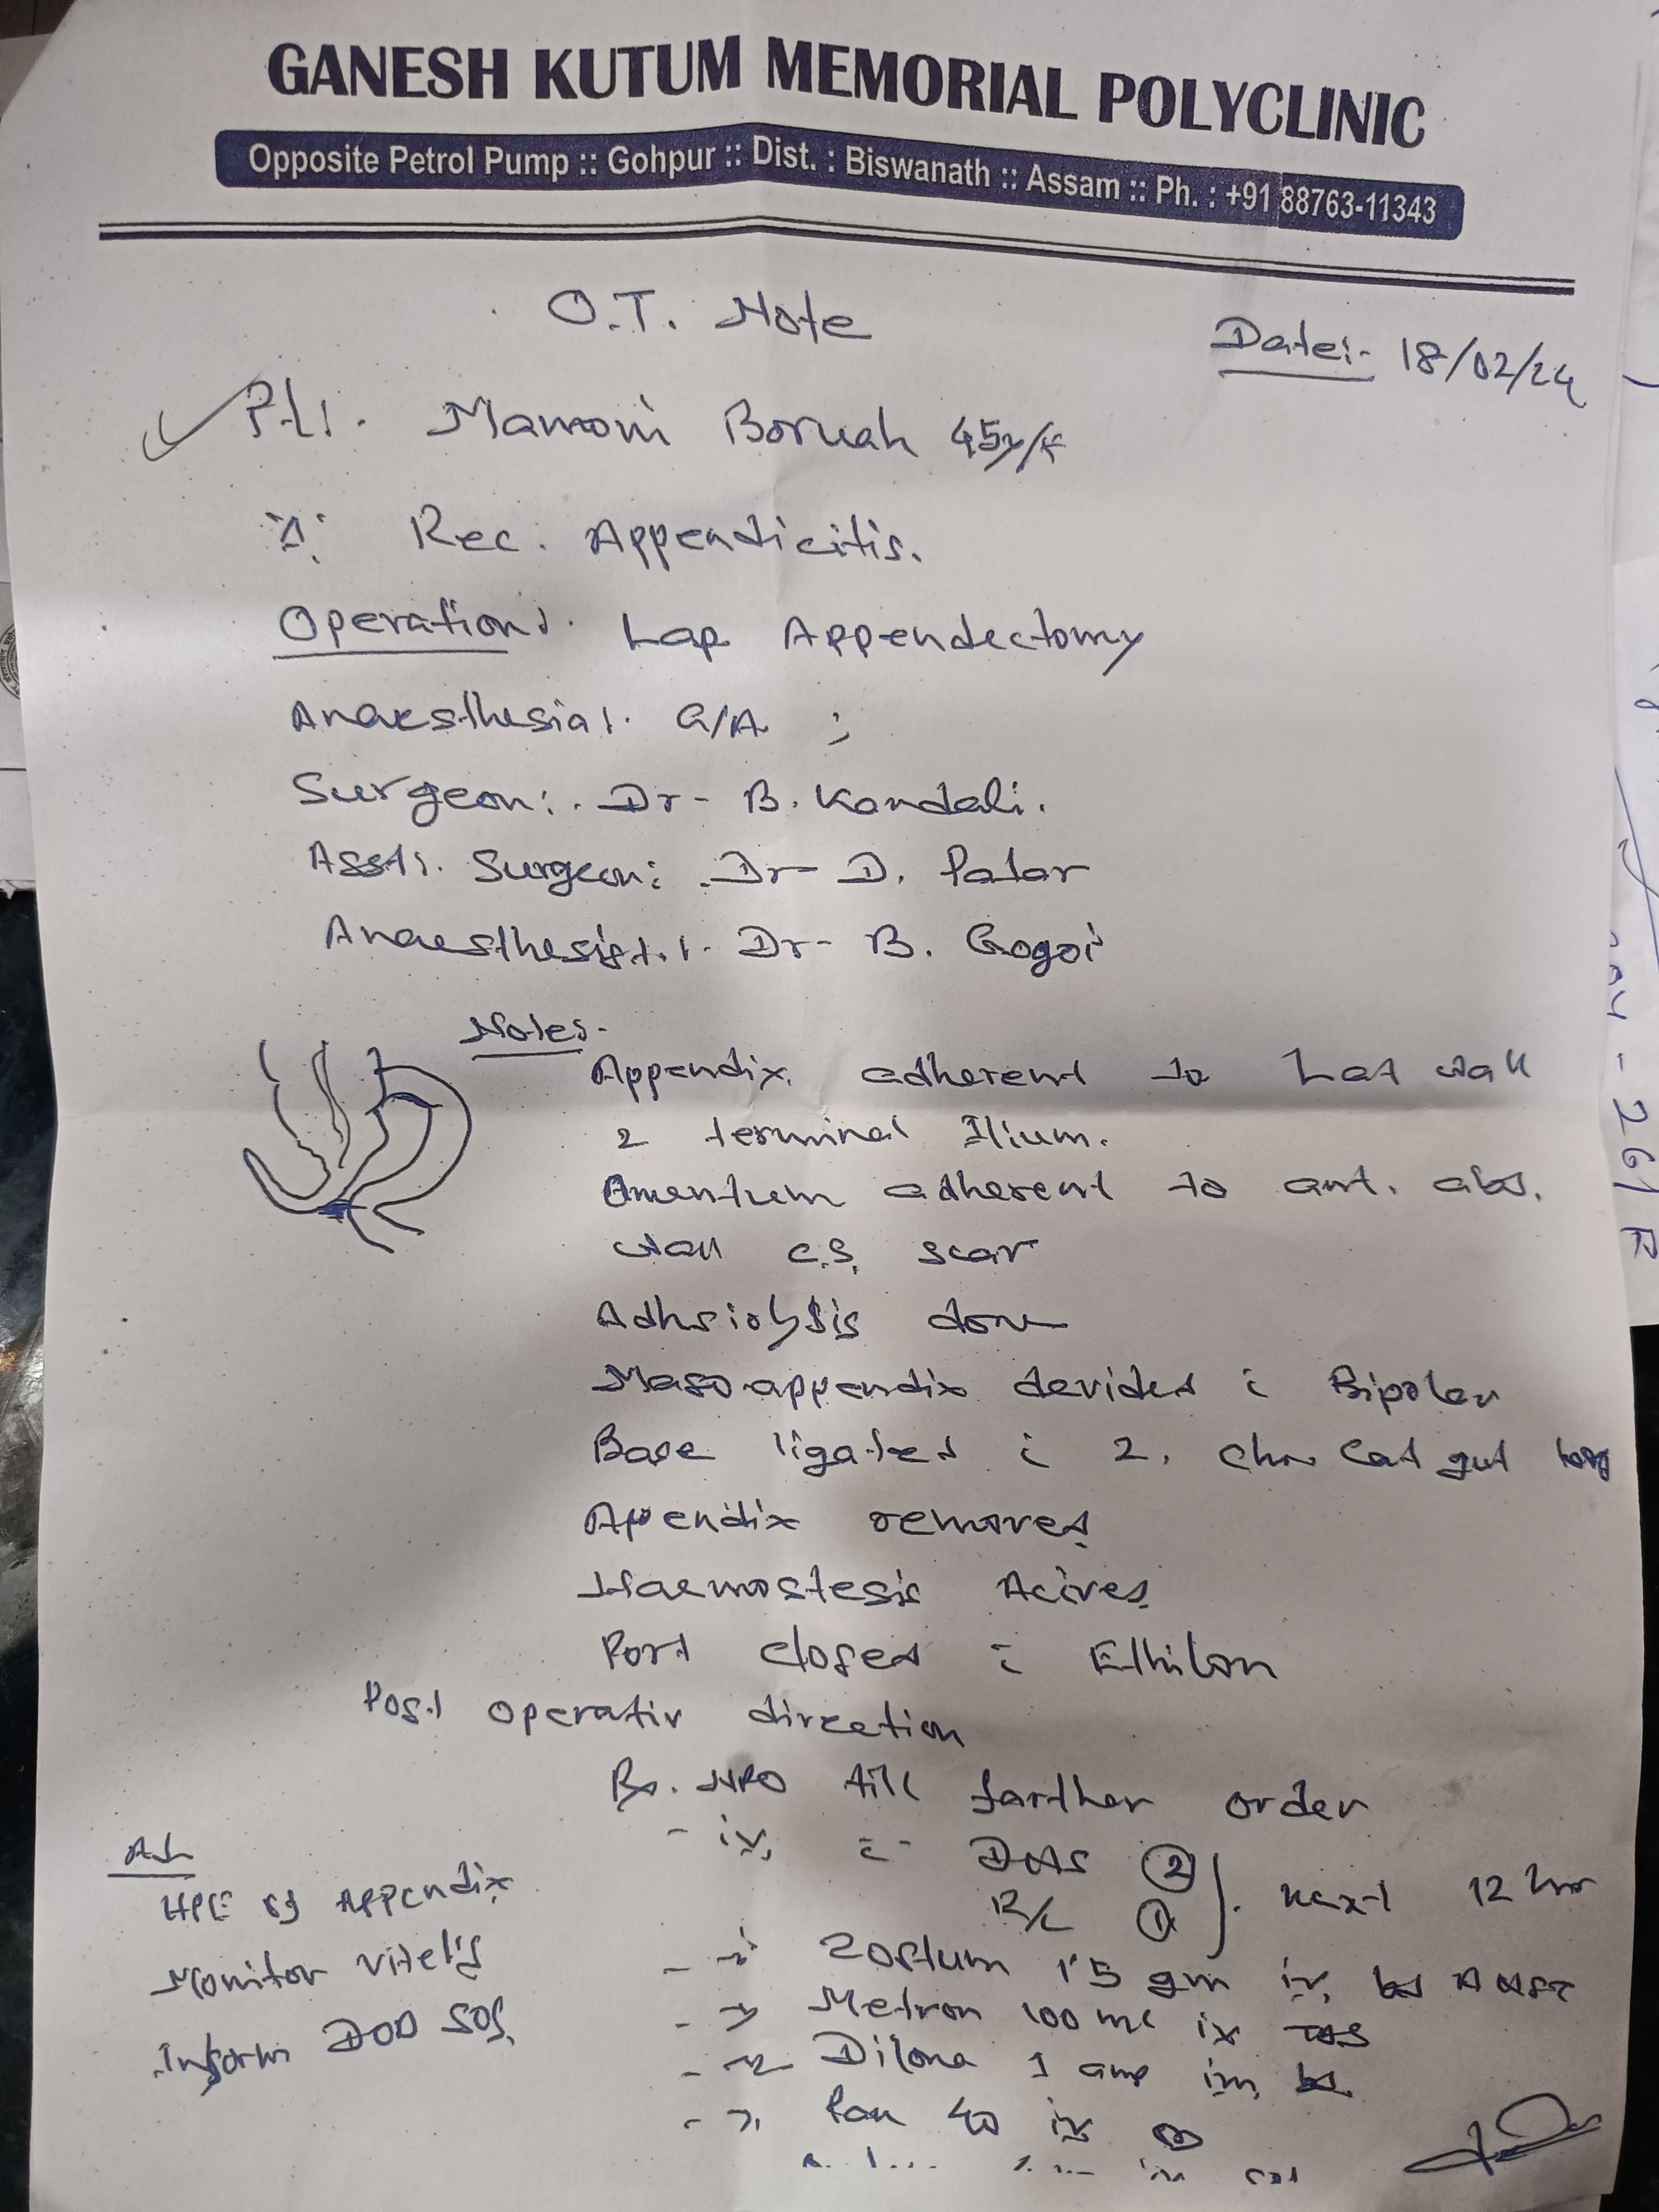 GANESH KUTUM MEMORIAL POLYCLINIC
Opposite Petrol Pump :: Gohpur :: Dist. : Biswanath :: Assam :: Ph. : +91 88763-11343
O.T. Note
Date:- 18/02/24
Pt:. Mamoni Boruah 45y/F
Rec. Appendicitis.
Operation:. Lap Appendectomy
Anaesthesia:. G/A
Surgeon:. Dr- B. Kandali.
Asst:. Surgeon: Dr- D. Patar
Anaesthesist:. Dr- B. Gogoi
Notes-
Appendix adherent to Lat wall
2 terminal Ilium.
Omentum adherent to ant. abd.
wall C.S. scar
Adhsiolysis done
Masoappendix devided c Bipolar
Base ligated c 2. Catgut loop
Apendix removed
Haemostesis Acived
Port closed c Ethilon
Post operativ direction
Rx. NPO till farther order
- iv, c- DNS (2)
R/L (1) }. next 12 hr
- Zostum 1.5 gm iv, bd AMST
- Metron 100 ml iv TDS
- Dilona 1 amp im, bd
- Pan 40 iv OD
Ad
HPE of Appendix
Monitor vitels
Inform DOD SOS.